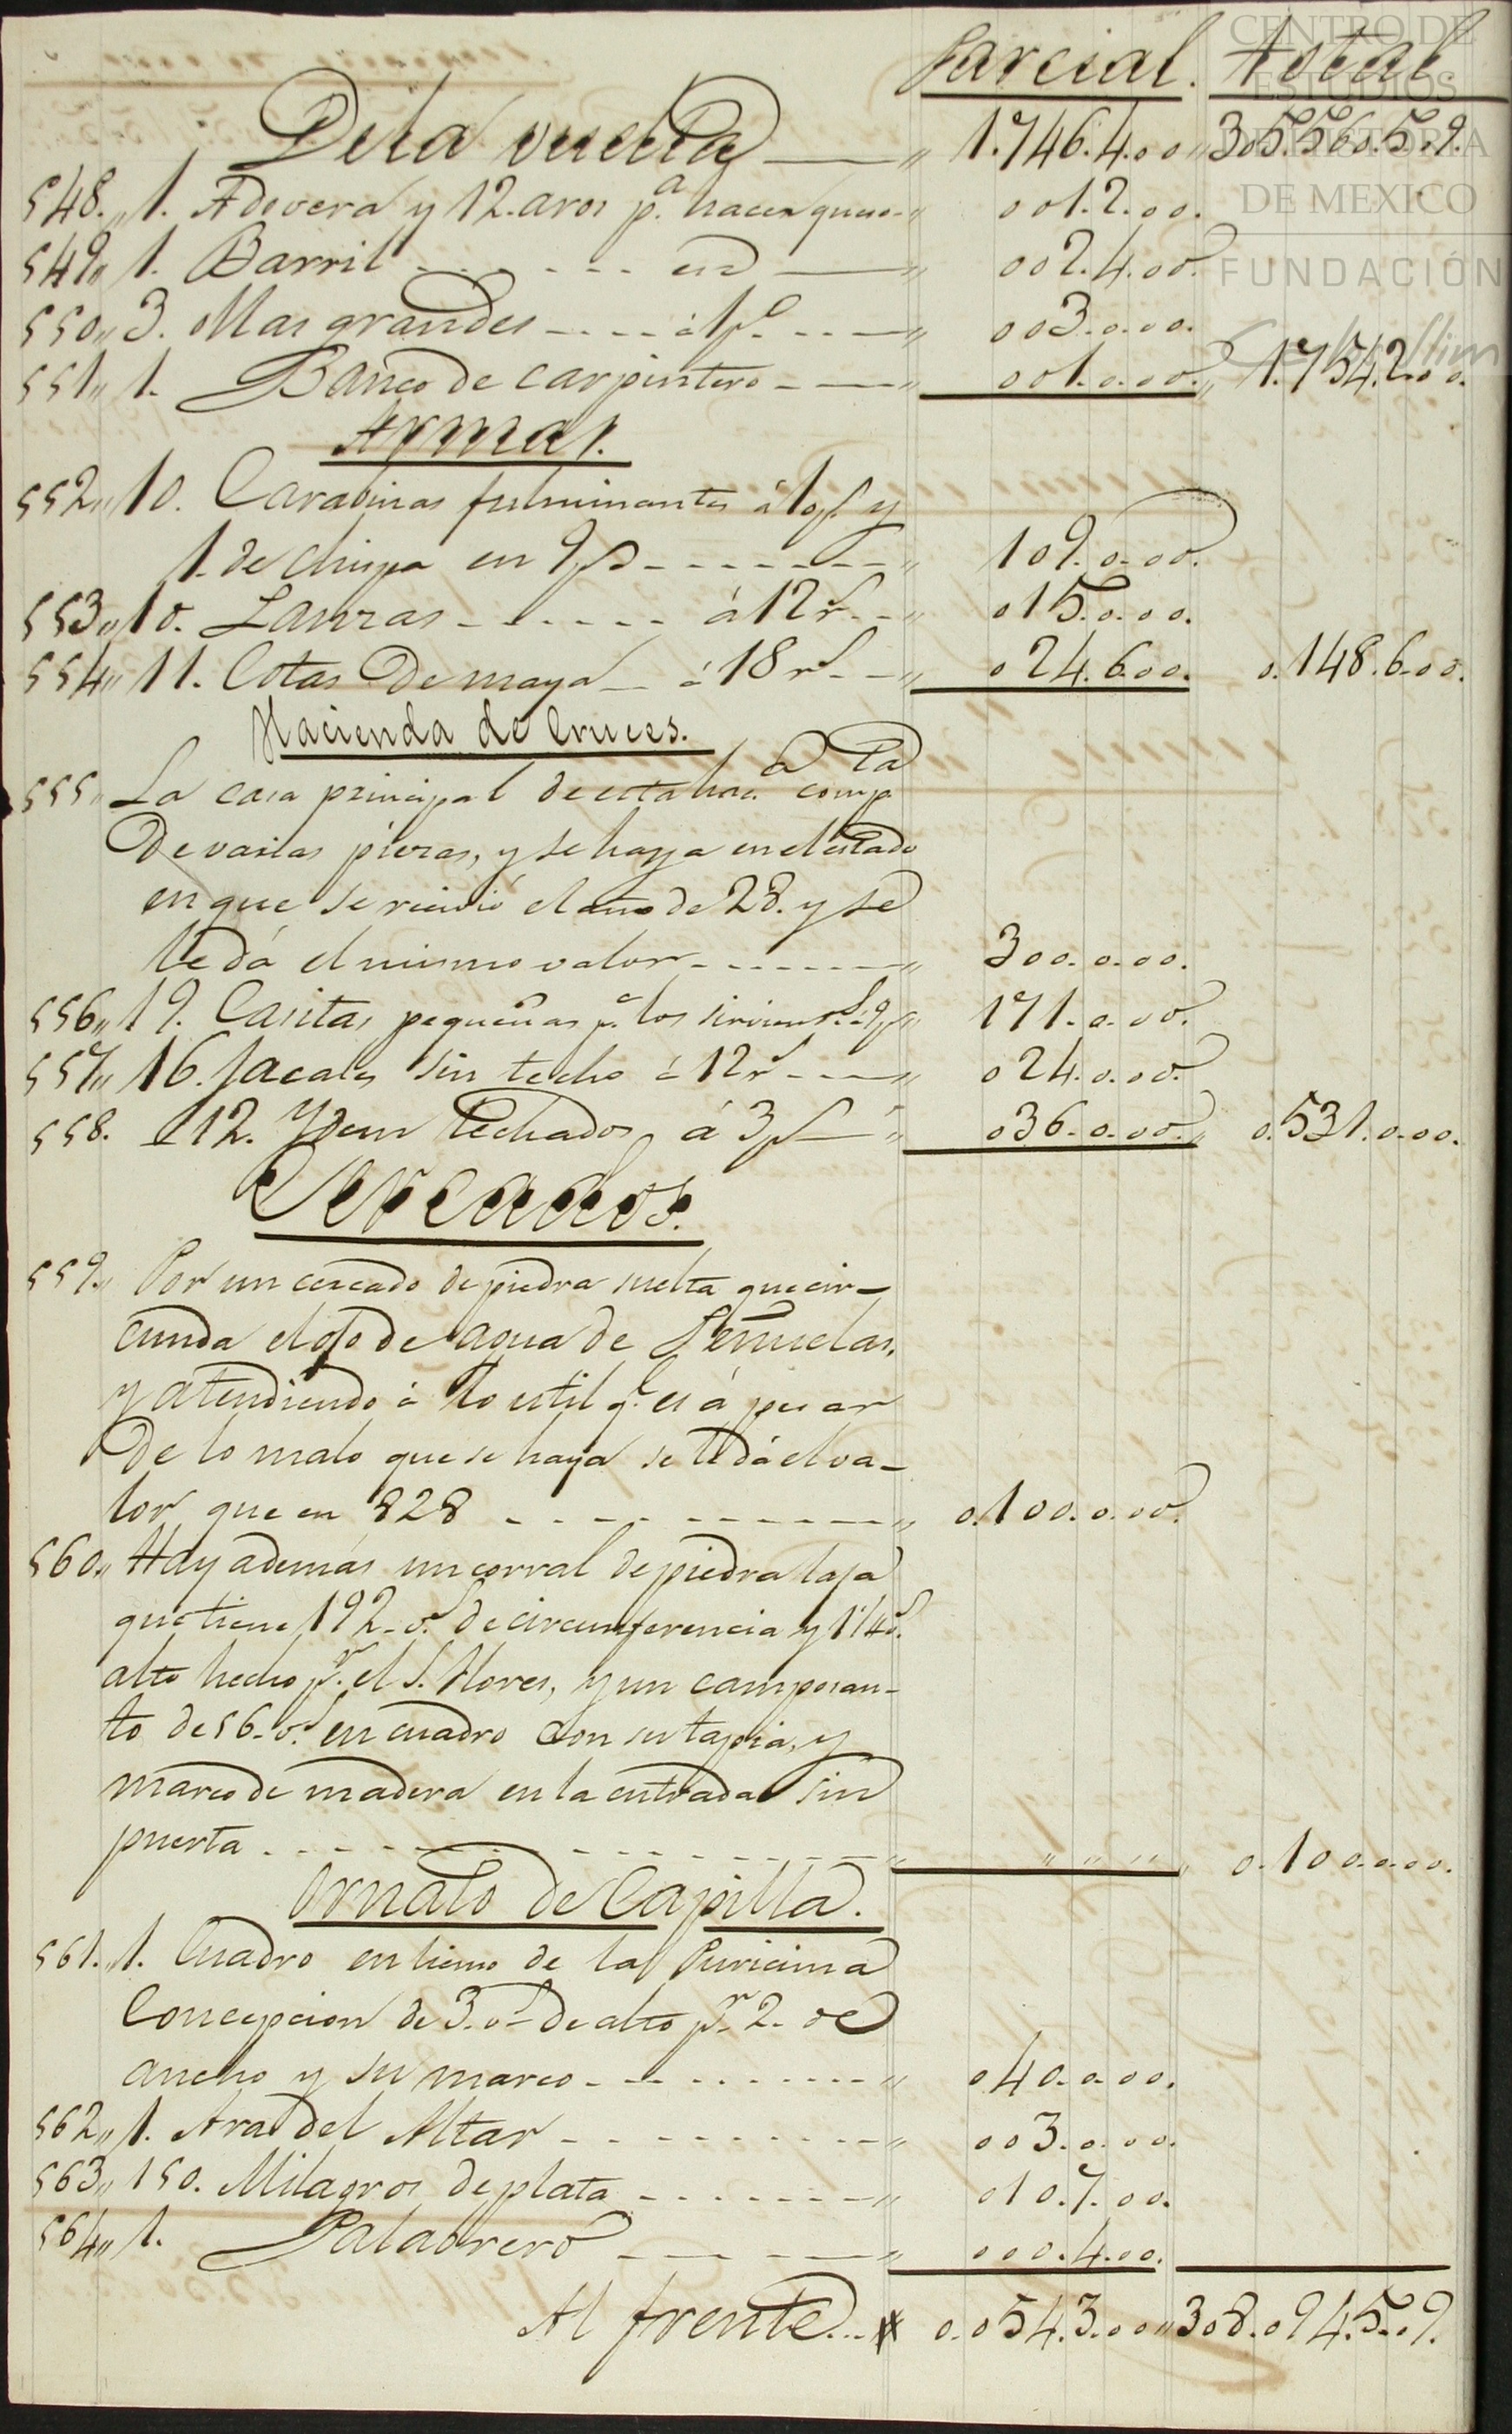 CENTRO DE
ESTUDIOS
DE HISTORIA
DE MEXICO
FUNDACIÓN
Parcial. Total.
De la vuelta — 1.746.4.00 305.560.5.9.
548. 1. Adovera y 12. aros p.ª hacer queso 001.2.00.
549. 1. Barril en 002.4.00.
550. 3. Mas grandes á 1 p.º 003.0.00.
551. 1. Banco de carpintero 001.0.00. 1.754.2.00.
Armas.
552. 10. Carabinas fulminantes á 10 p.s y
1. de chispa en 9 p.s 109.0.00.
553. 10. Lanzas á 12 r.s 015.0.00.
554. 11. Cotas de maya á 18 r.s 024.6.00. 0.148.6.00.
Hacienda de Cruces.
555. La casa principal de esta hac.ª comp.ta
de varias piezas, y se haya en el estado
en que se recivió el año de 28. y se
le dá el mismo valor 300.0.00.
556. 19. Casitas pequeñas p.ª los sirvient.s á 9 p.s 171.0.00.
557. 16. Jacales sin techo á 12 r.s 024.0.00.
558. 12. Ydem techados á 3 p.s 036.0.00. 0.531.0.00.
Cercados.
559. Por un cercado de piedra suelta que cir-
cunda el ojo de agua de Peñuelas,
y atendiendo á lo util q.e es á pesar
de lo malo que se haya se le dá el va-
lor que en 828 0.100.0.00.
560. Hay además un corral de piedra laja
que tiene 192. v.s de circunferencia y 1 1/4 v.s
alto hecho p.r el S. Flores, y un camposan-
to de 56. v.s en cuadro con su tapia, y
marco de madera en la entrada sin
puerta 0.100.0.00.
Ornato de Capilla.
561. 1. Cuadro en lienso de la Puricima
Concepcion de 3. v.s de alto p.r 2. de
ancho y su marco 040.0.00.
562. 1. Ara del Altar 003.0.00.
563. 150. Milagros de plata 010.7.00.
564. 1. Palabrero 000.4.00.
Al frente 0.054.3.00 308.094.5.9.